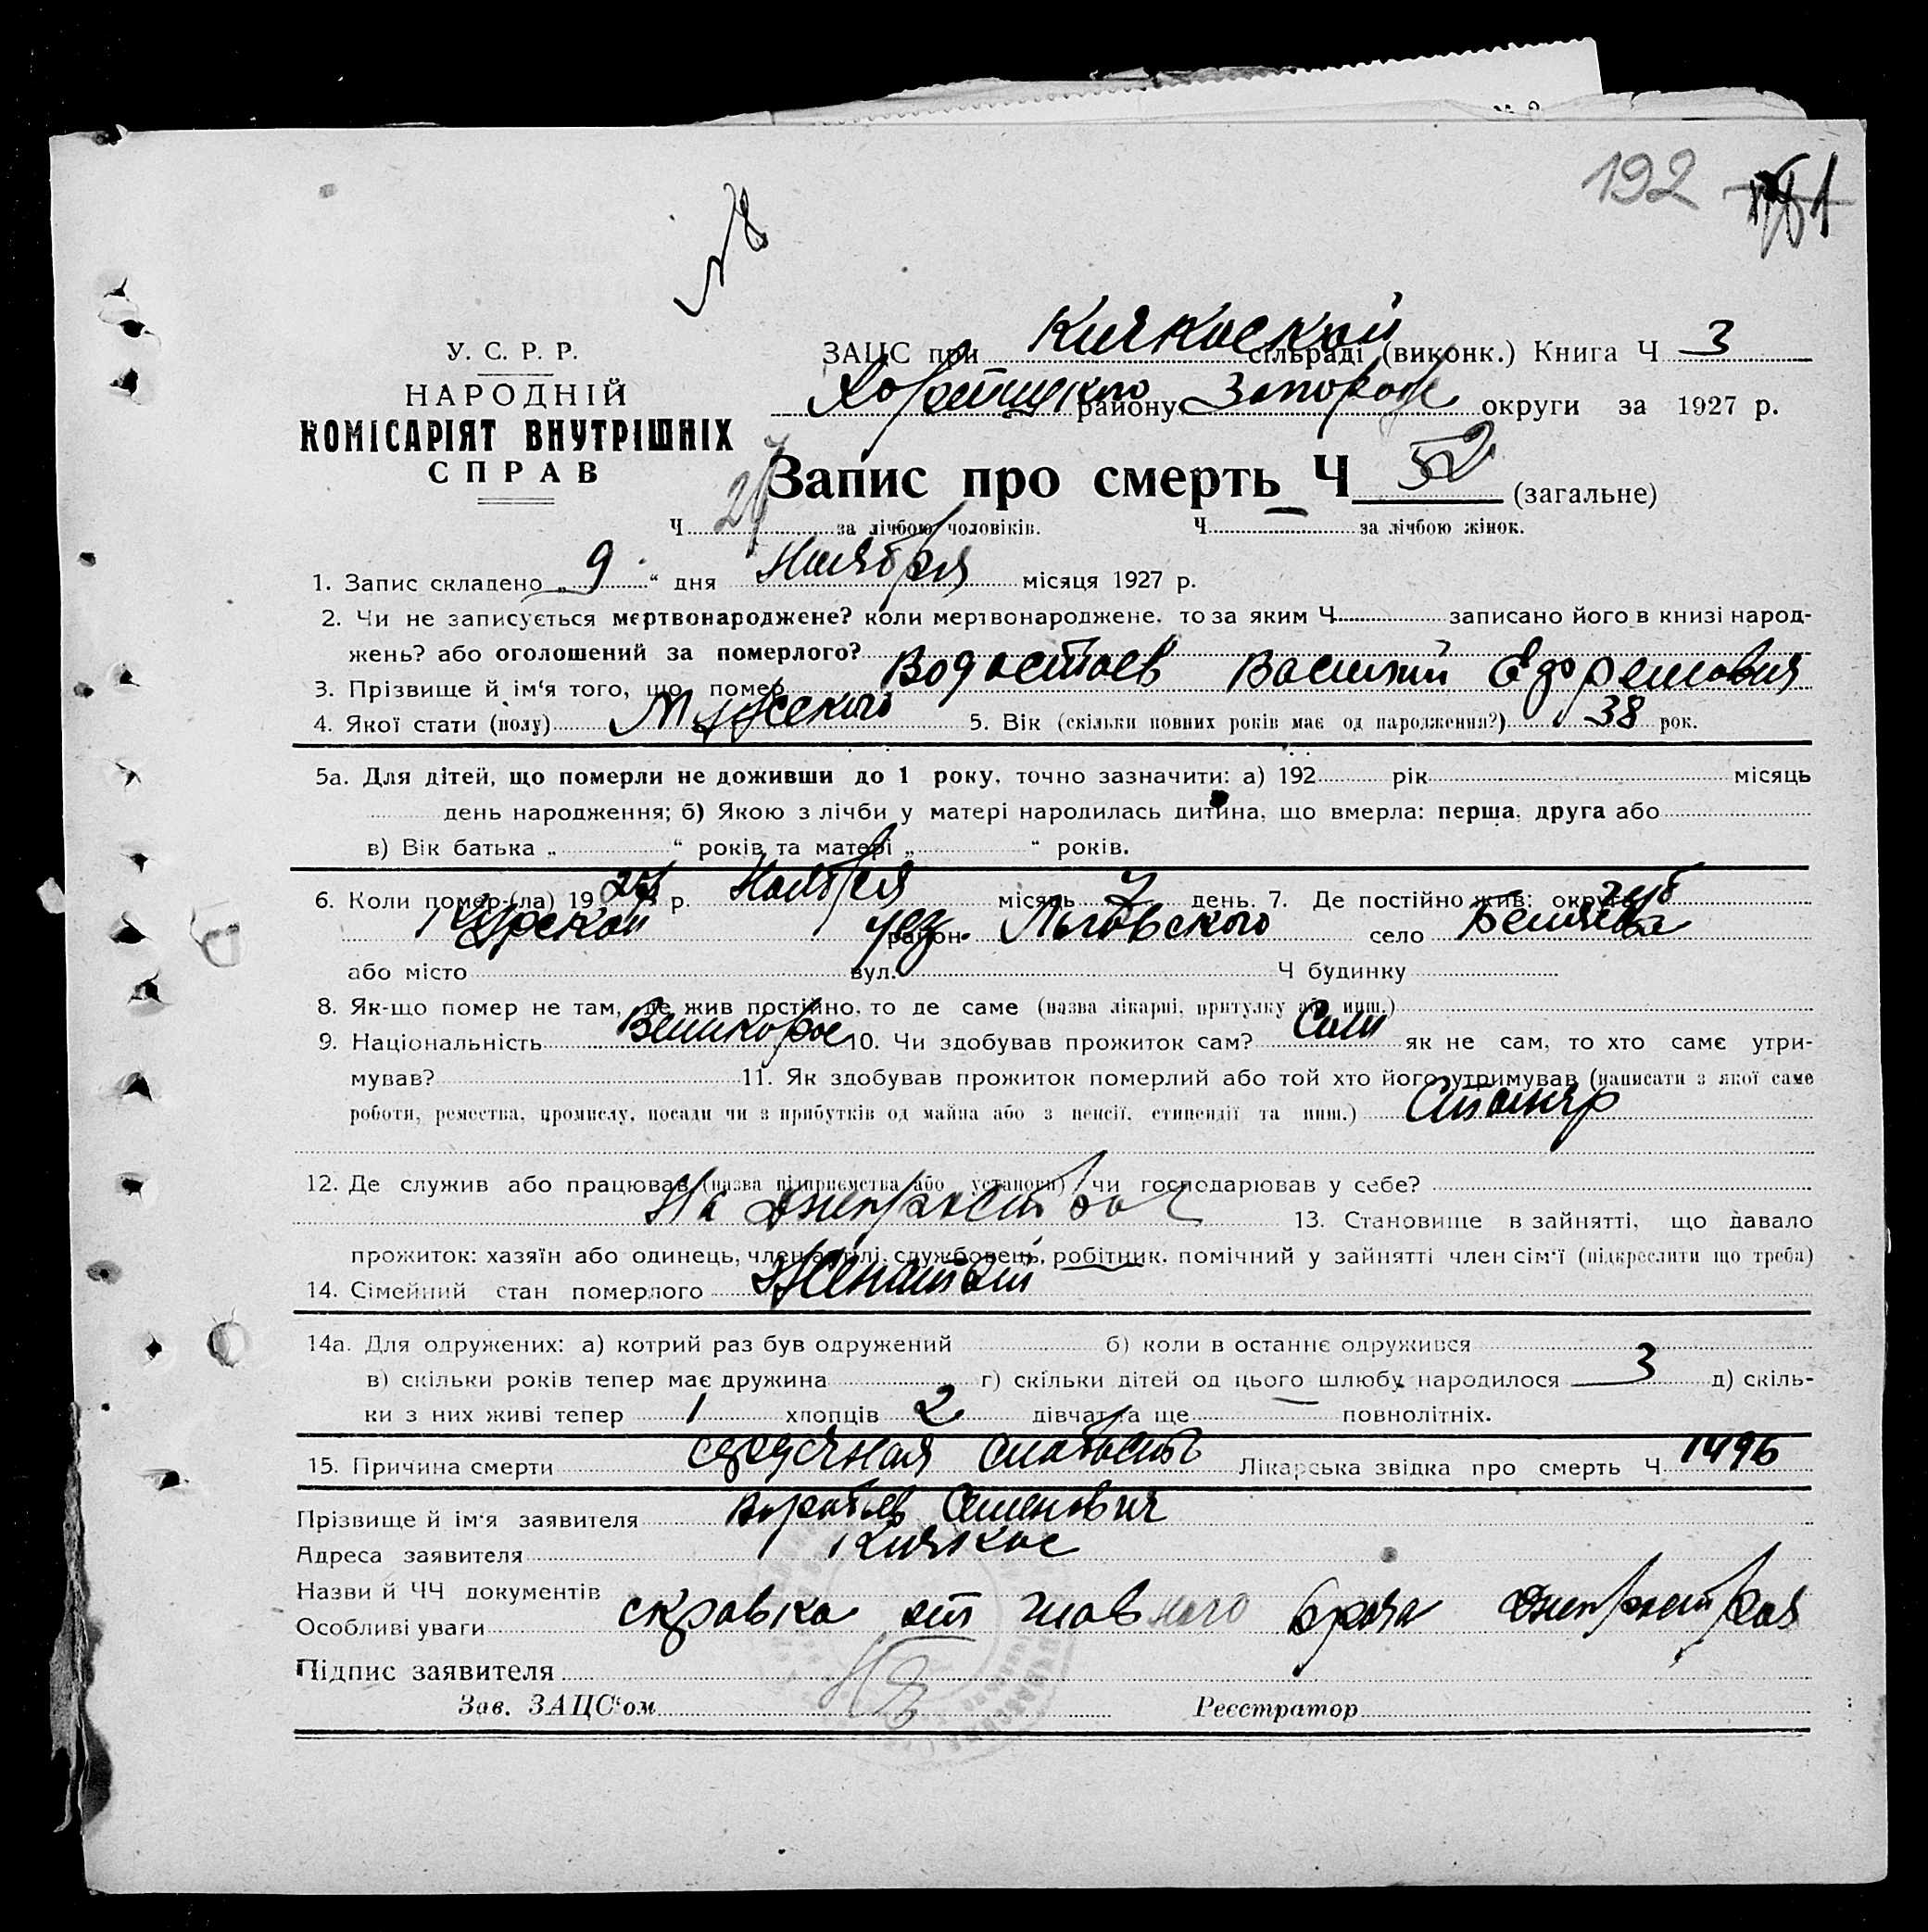 192
№ 8
У. С. Р. Р.
НАРОДНІЙ
КОМІСАРІЯТ ВНУТРІШНІХ
СПРАВ
ЗАЦС при Кичкаской сільраді (виконк.) Книга Ч 3
Хортицкого району Запорож округи за 1927 р.
Запис про смерть Ч 52 (загальне)
Ч за лічбою чоловіків. Ч — за лічбою жінок.
1. Запис складено „ 9 “ дня Ноября місяця 1927 р.
2. Чи не записується мертвонароджене? коли мертвонароджене, то за яким Ч записано його в книзі народ-
жень? або оголошений за померлого?
3. Прізвище й ім‘я того, що помер Водостоев Василий
4. Якої стати (полу) Мужского 5. Вік (скільки повних років має од народження?) 38 рок.
5а. Для дітей, що померли не доживши до 1 року, точно зазначити: а) 192 рік місяць
день народження; б) Якою з лічби у матері народилась дитина, що вмерла: перша, друга або
в) Вік батька „ “ років та матері „ “ років.
6. Коли помер (ла) 1927 р. Ноября місяць 7 день. 7. Де постійно жив: округа губ
Курской район уез. Льговского село
або місто вул. Ч будинку
8. Як-що помер не там, де жив постійно, то де саме (назва лікарні, притулку або инш.)
9. Національність Великорос 10. Чи здобував прожиток сам? Сам як не сам, то хто саме утри-
мував? 11. Як здобував прожиток померлий або той хто його утримував (написати з якої саме
роботи, ремества, промислу, посади чи з прибутків од майна або з пенсії, стипендії та инш.) Столяр
12. Де служив або працював (назва підприємства або установи) чи господарював у себе?
На Днепрострое 13. Становище в зайнятті, що давало
прожиток: хазяїн або одинець, член артілі, службовець, робітник, помічний у зайнятті член сім‘ї (підкреслити що треба)
14. Сімейний стан померлого Женатый
14а. Для одружених: а) котрий раз був одружений б) коли в останнє одружився
в) скільки років тепер має дружина г) скільки дітей од цього шлюбу народилося 3 д) скіль-
ки з них живі тепер 1 хлопців 2 дівчат та ще — повнолітніх.
15. Причина смерти сердечная слабость Лікарська звідка про смерть Ч 1496
Прізвище й ім‘я заявителя Семенович
Адреса заявителя Кичкас
Назви й ЧЧ документів
Особливі уваги справка от главного врача Днепростроя
Підпис заявителя
Зав. ЗАЦС‘ом Реєстратор